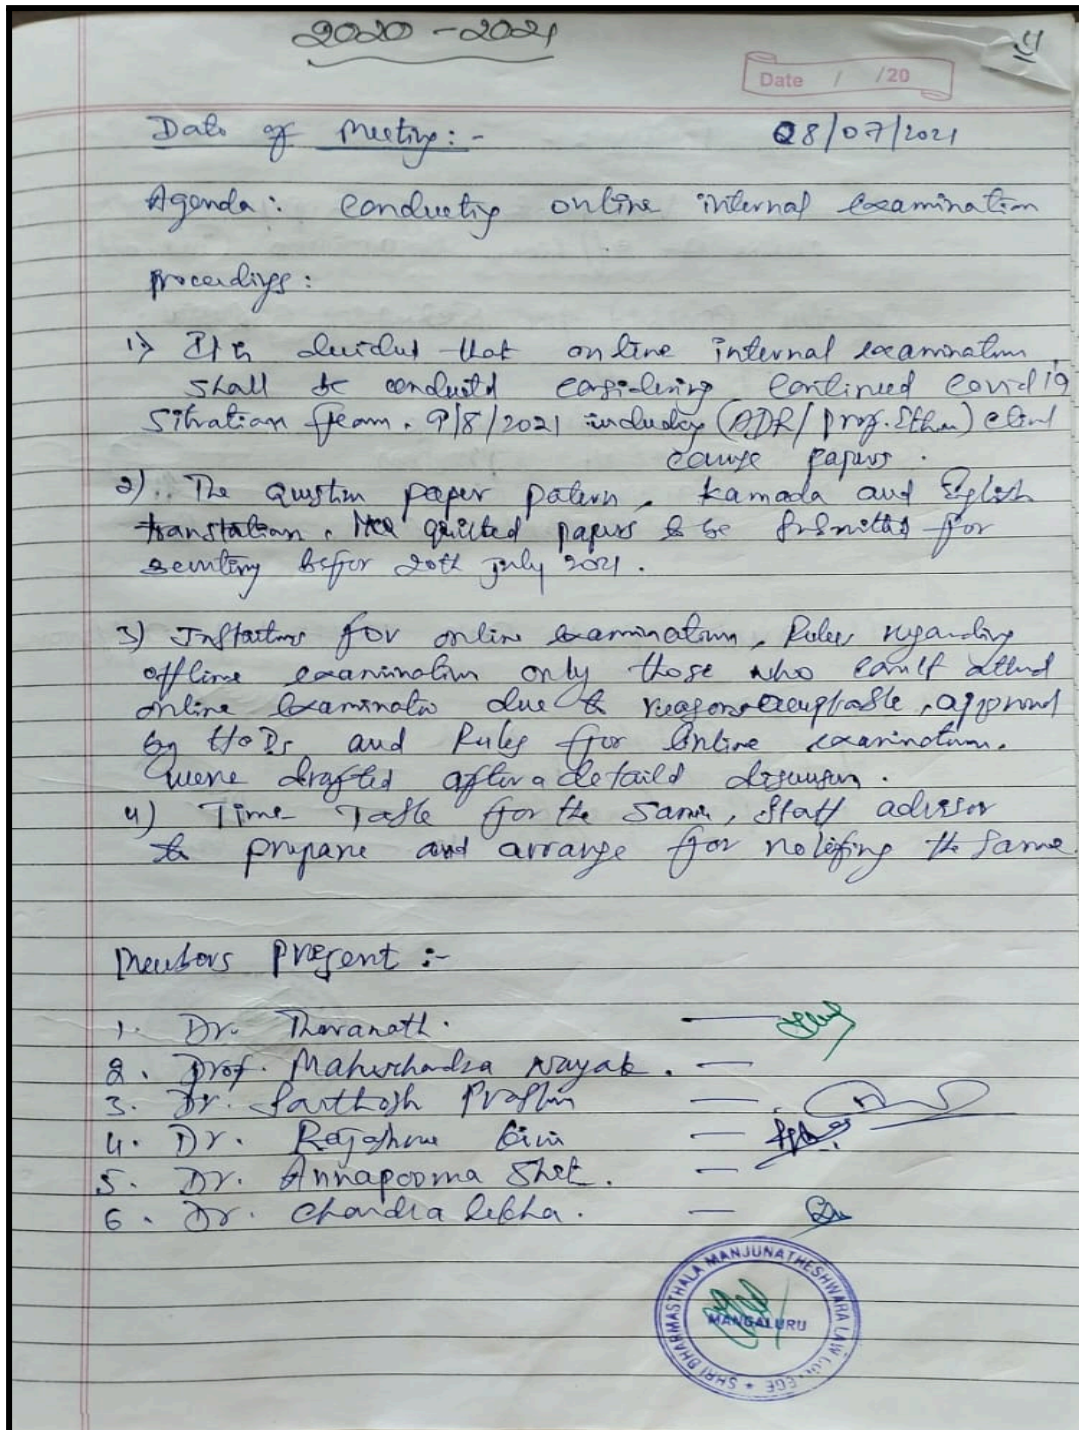 2020 - 2021
Date / /20
Date of Meeting:- 08/07/2021
Agenda: Conducting online internal examination
Proceedings:
1) It is decided that online internal examination
shall be conducted considering continued covid 19
Situation from. 9/8/2021 including (ADR/Prof. Ethics) Clinl
course papers.
2) The question paper patern, Kannada and English
translation. papers to be submitted for
scrutiny before 20th July 2021.
3) Instructions for online examination, Rules regarding
offline examination only those who can't attend
online examination due to reasons acceptable, approved
by HoDs and Rules for online examination.
were drafted after a detaild discussion.
4) Time Table for the Same, Staff advisor
to prepare and arrange for notifing the same
Members Present :-
1. Dr. Tharanath.
2. Prof. Maheshchandra Nayak.
3. Dr. Santhosh Prabhu
4. Dr.
5. Dr. Annapoorna Shet.
6. Dr. Chandralekha.
SHRI DHARMASTHALA MANJUNATHESHWARA LAW COLLEGE
MANGALURU